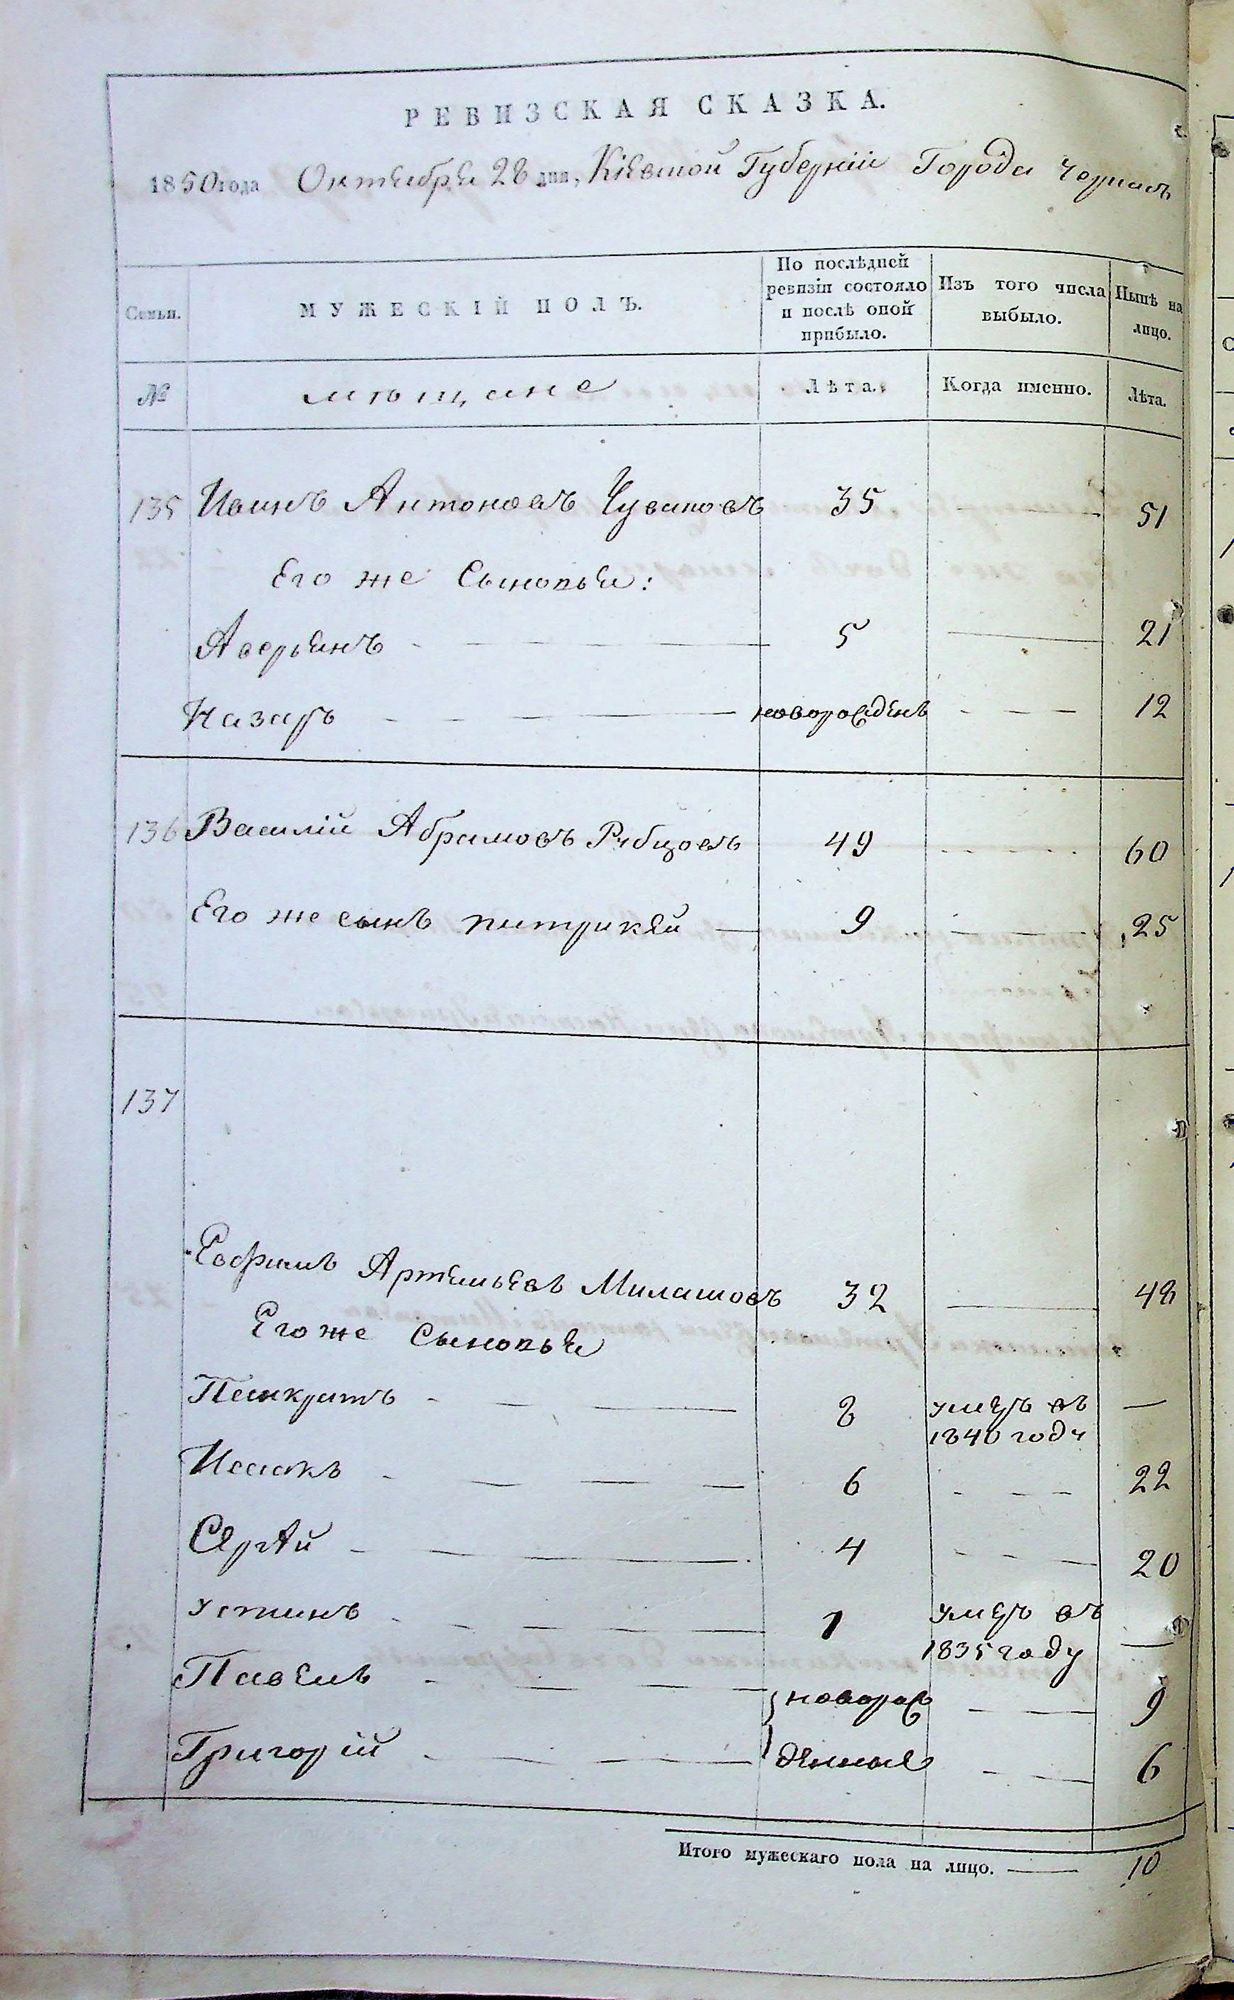 РЕВИЗСКАЯ СКАЗКА.
1850 года Октября 28 дня, Кіевской Губерніи Города Черкасъ
Семьи.
МУЖЕСКІЙ ПОЛЪ.
По послѣдней ревизіи состояло и послѣ оной прибыло.
Изъ того числа выбыло.
Нынѣ на лицо.
№ мѣщане Лѣта. Когда именно. Лѣта.
135 Иванъ Антоновъ Чуваковъ 35 51
Его же Сыновья:
Аверьянъ 5 21
Назаръ новорожденъ 12
136 Василій Абрамовъ Рубцовъ 49 60
Его же сынъ патрикей 9 25
137
Евфимъ Артемьевъ Милашовъ 32 48
Его же Сыновья
Панкратъ 8 умеръ въ 1840 году —
Исаакъ 6 22
Сергѣй 4 20
Устинъ 1 умеръ въ 1835 году —
Павелъ новорож 9
Григорій денные 6
Итого мужескаго пола на лицо. 10